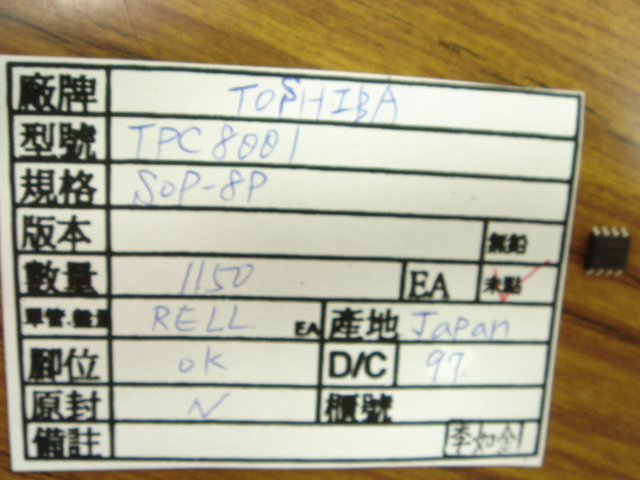 廠牌 TOSHIBA
型號 TPC8001
規格 SOP-8P
版本 無鉛
數量 1150 EA 未點
單管.盤量 RELL EA 產地 Japan
腳位 OK D/C 97
原封 N 櫃號
備註